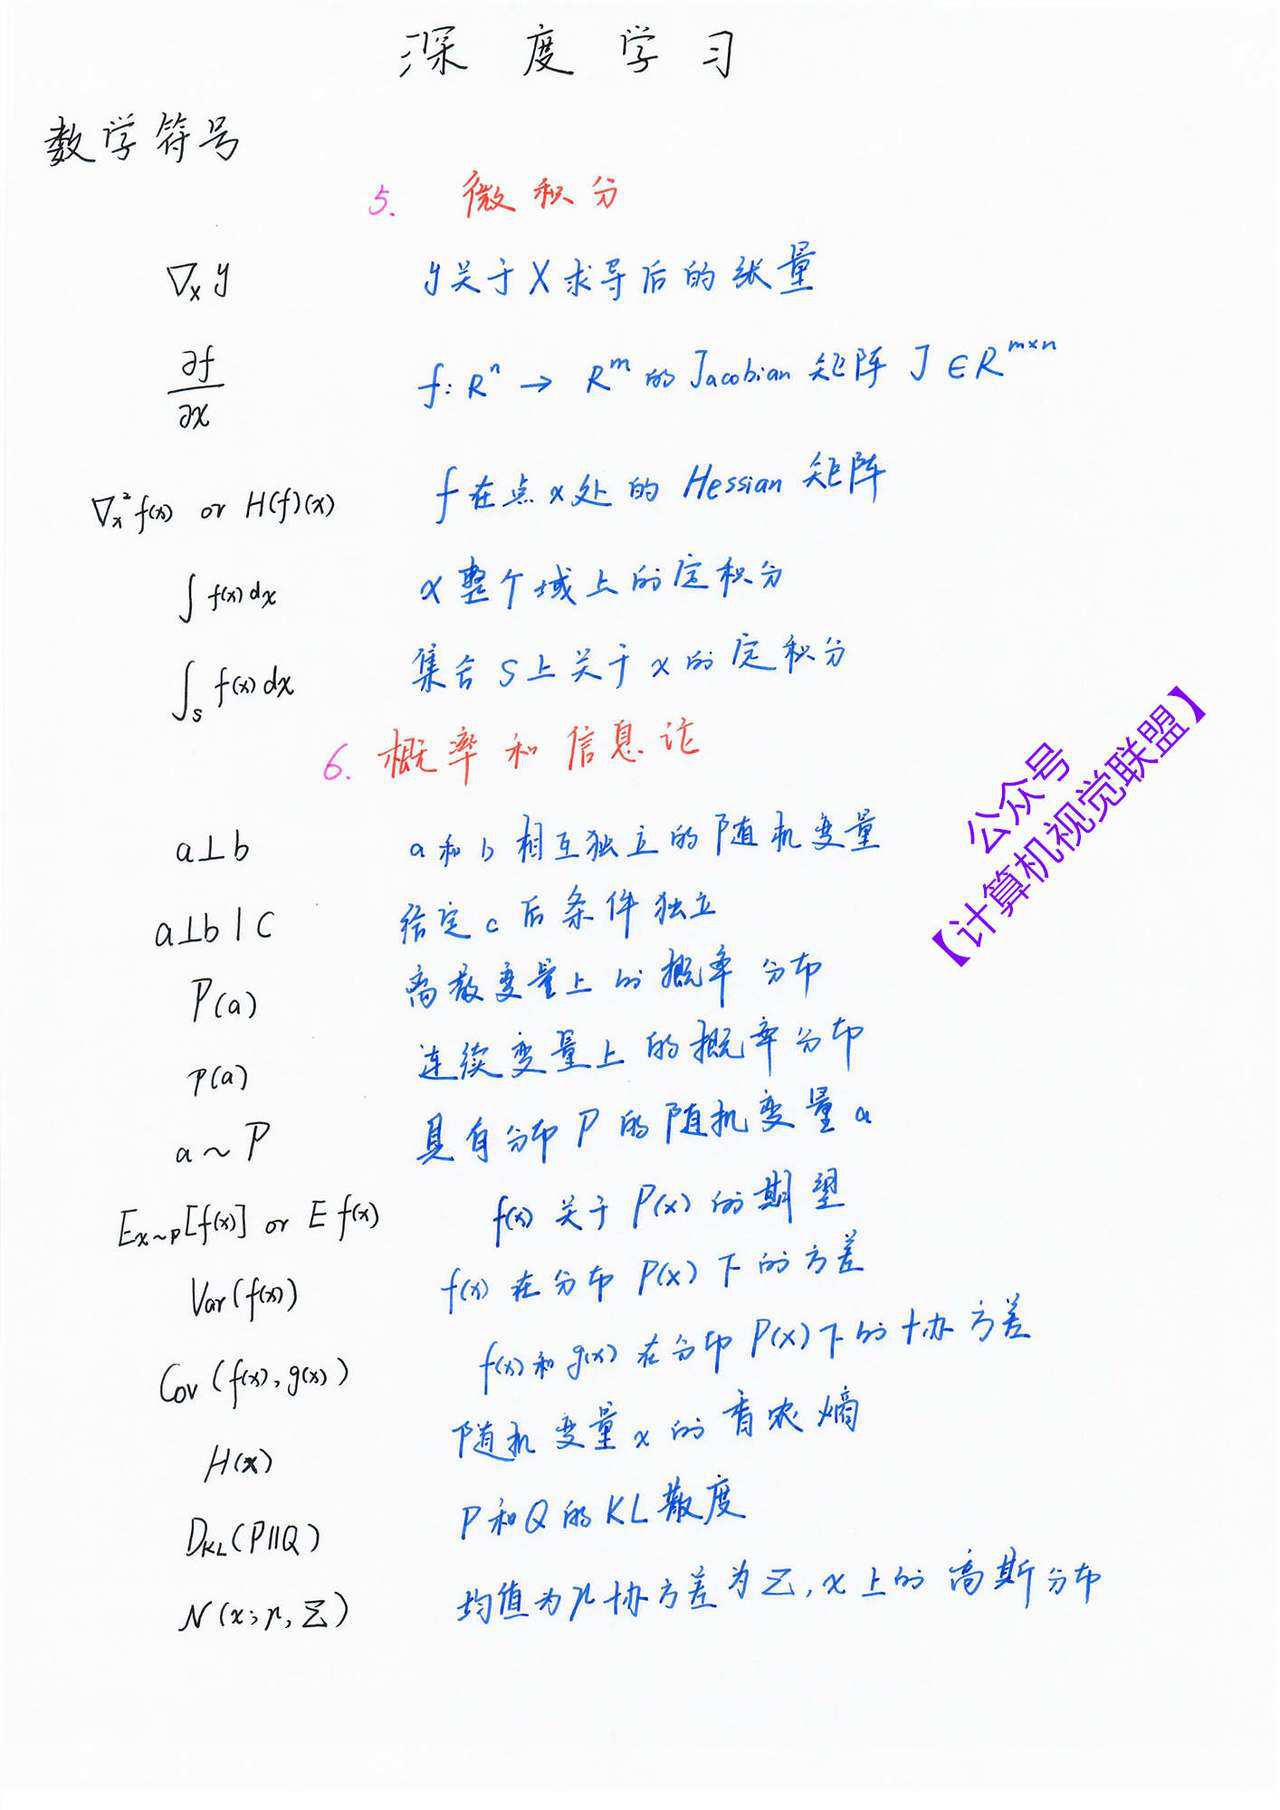 深度学习
数学符号
5. 微积分
∇ₓ y y关于X求导后的张量
∂f/∂x f: Rⁿ → Rᵐ 的 Jacobian 矩阵 J ∈ Rᵐˣⁿ
∇ₓ² f(x) or H(f)(x) f在点x处的 Hessian 矩阵
∫ f(x) dx x整个域上的定积分
∫_S f(x) dx 集合S上关于x的定积分
6. 概率和信息论
a⊥b a和b相互独立的随机变量
a⊥b | C 给定c后条件独立
P(a) 离散变量上的概率分布
p(a) 连续变量上的概率分布
a ~ P 具有分布P的随机变量a
E_{x~P}[f(x)] or E f(x) f(x)关于P(x)的期望
Var(f(x)) f(x)在分布P(x)下的方差
Cov(f(x), g(x)) f(x)和g(x)在分布P(x)下的协方差
H(x) 随机变量x的香农熵
D_KL(P||Q) P和Q的KL散度
N(x; μ, Σ) 均值为μ协方差为Σ, x上的高斯分布
公众号
【计算机视觉联盟】